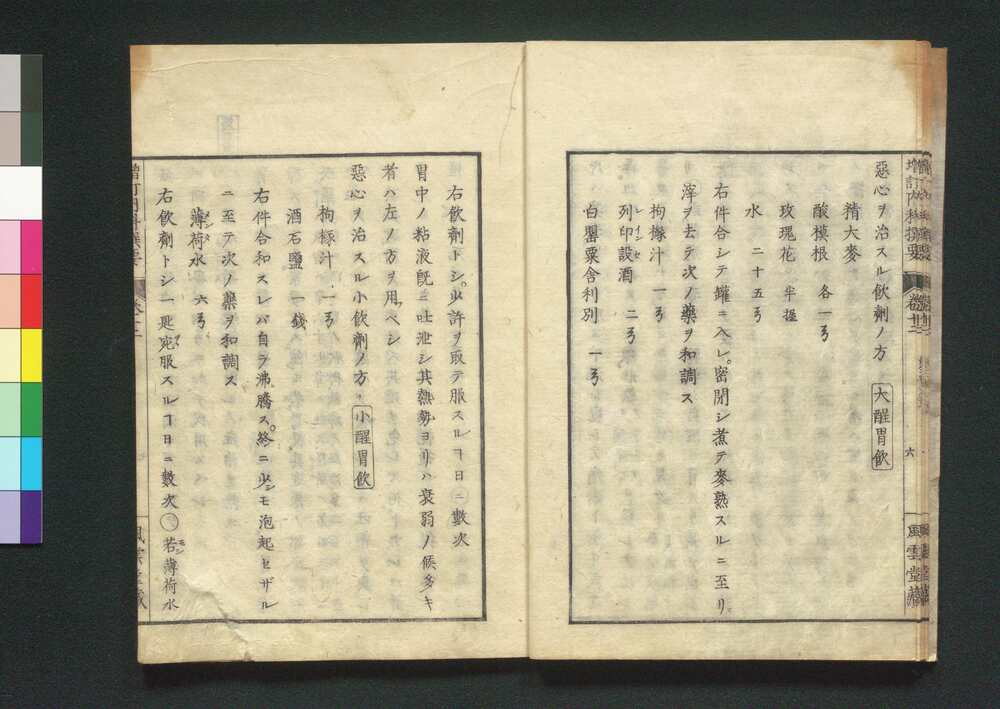 增訂内科撰要
卷十二
六
風雲堂藏
惡心ヲ治スル飲劑ノ方 大醒胃飲
精大麥
酸模根 各一弓
玫瑰花 半握
水 二十五弓
右件合シテ罐ニ入レ。密閉シ煮テ麥熟スルニ至リ。
滓ヲ去テ次ノ藥ヲ和調ス
枸櫞汁 一弓
列印設酒 二弓
レインセ
白罌粟舎利別 一弓
右飲劑トシ。少許ヲ取テ服スルヿ日ニ數次
胃中ノ粘液既ニ吐泄シ其熱勢ヨリハ衰弱ノ候多キ
者ハ左ノ方ヲ用ベシ
惡心ヲ治スル小飲劑ノ方 小醒胃飲
枸櫞汁 一弓
酒石鹽 一錢
右件合和スレバ自ラ沸騰ス。終ニ少シモ泡起セザル
ニ至テ次ノ藥ヲ和調ス
薄荷水 六弓
右飲劑トシ一匙宛服スルヿ日ニ數次○若薄荷水
モシ